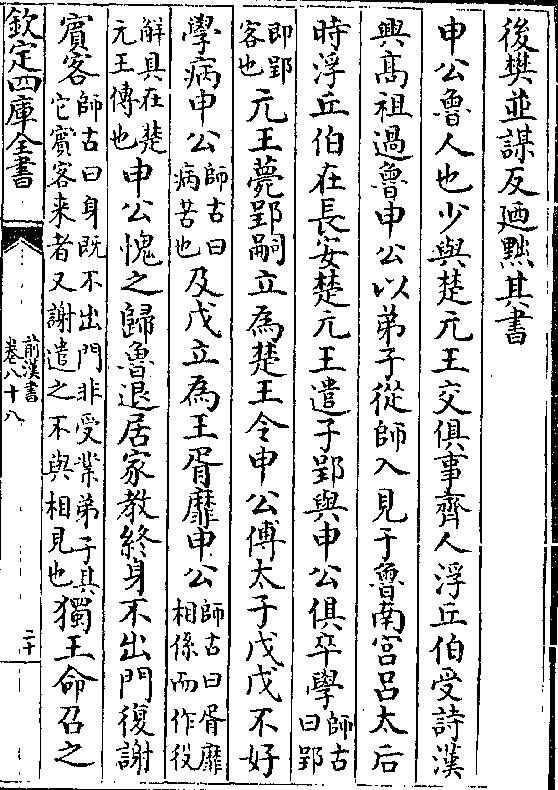 後樊並謀反廼黜其書
申公魯人也少與楚元王交俱事齊人浮丘伯受詩漢
興高祖過魯申公以弟子從師入見于魯南宮吕太后
時浮丘伯在長安楚元王遣子郢與申公俱卒學師古曰郢
即郢客也元王薨郢嗣立為楚王令申公傅太子戊戊不好
學病申公師古曰病苦也及戊立為王胥靡申公師古曰胥靡相係而作役
解具在楚元王傳也申公愧之歸魯退居家教終身不出門復謝
賔客師古曰身既不出門非受業弟子其它賔客來者又謝遣之不與相見也獨王命召之
欽定四庫全書
前漢書
卷八十八
二十